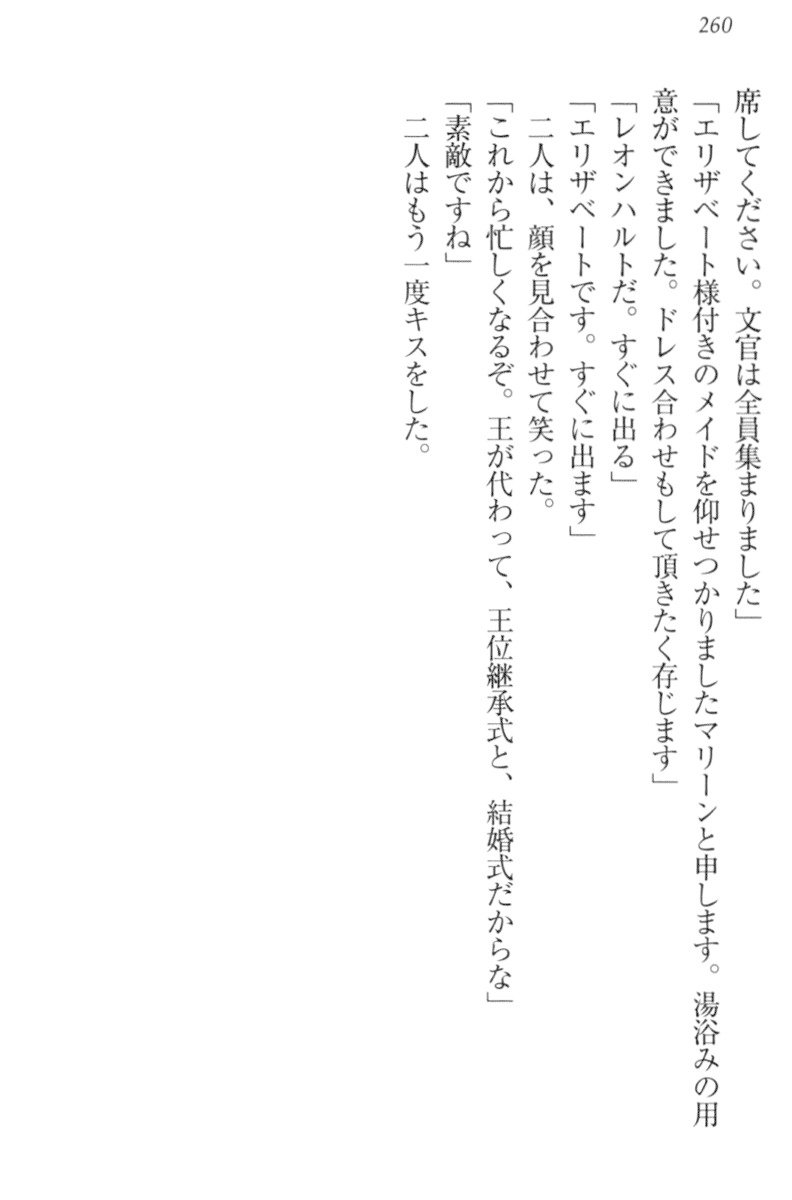 260
席してください。文官は全員集まりました」
「エリザベート様付きのメイドを仰せつかりましたマリーンと申します。湯浴みの用
意ができました。ドレス合わせもして頂きたく存じます」
「レオンハルトだ。すぐに出る」
「エリザベートです。すぐに出ます」
　二人は、顔を見合わせて笑った。
「これから忙しくなるぞ。王が代わって、王位継承式と、結婚式だからな」
「素敵ですね」
　二人はもう一度キスをした。